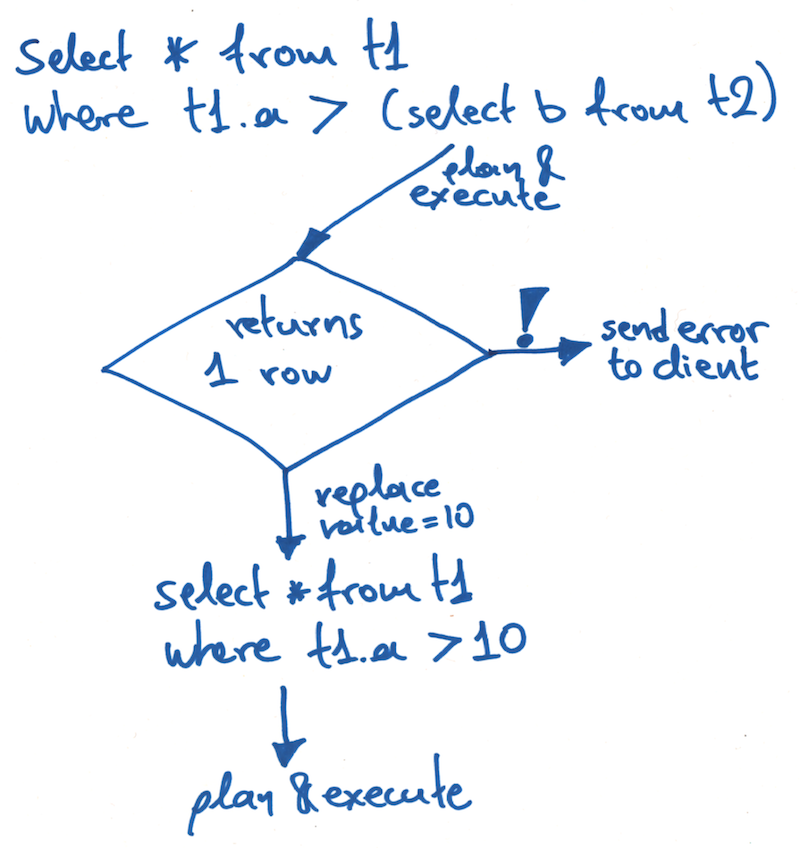 select * from t1
where t1.a > (select b from t2)
plan &
execute
returns
1 row
!
send error
to client
replace
value=10
select * from t1
where t1.a > 10
plan & execute